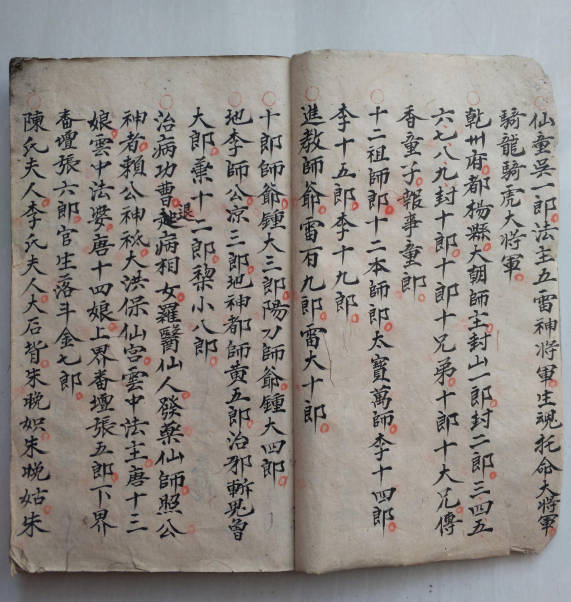 仙童吳一郎法主五雷神將軍生魂托命大將軍
騎龍騎虎大將軍
乾州府都楊縣大朝師主封山一郎封二郎三四五
六七八九封十郎十郎十兄弟十郎十大兄傳
香童子報事童郎
十二祖師郎十二本師郎太寶萬師李十四郎
李十五郎李十九郎
進教師爺雷石九郎雷大十郎
十郎師爺鍾大三郎陽刀師爺鍾大四郎
地李師公凉三郎地神都師黄五郎治邪斬鬼曾
大郎棄十二郎黎小八郎
治病功曹退病相女羅醫仙人發藥仙師照公
神者賴公神祇大洪保仙宮雲中法主唐十三
娘雲中法婆唐十四娘上界畨壇張五郎下界
畨壇張六郎官生落斗金七郎
陳氏夫人李氏夫人大后背朱晚娘朱晚姑朱